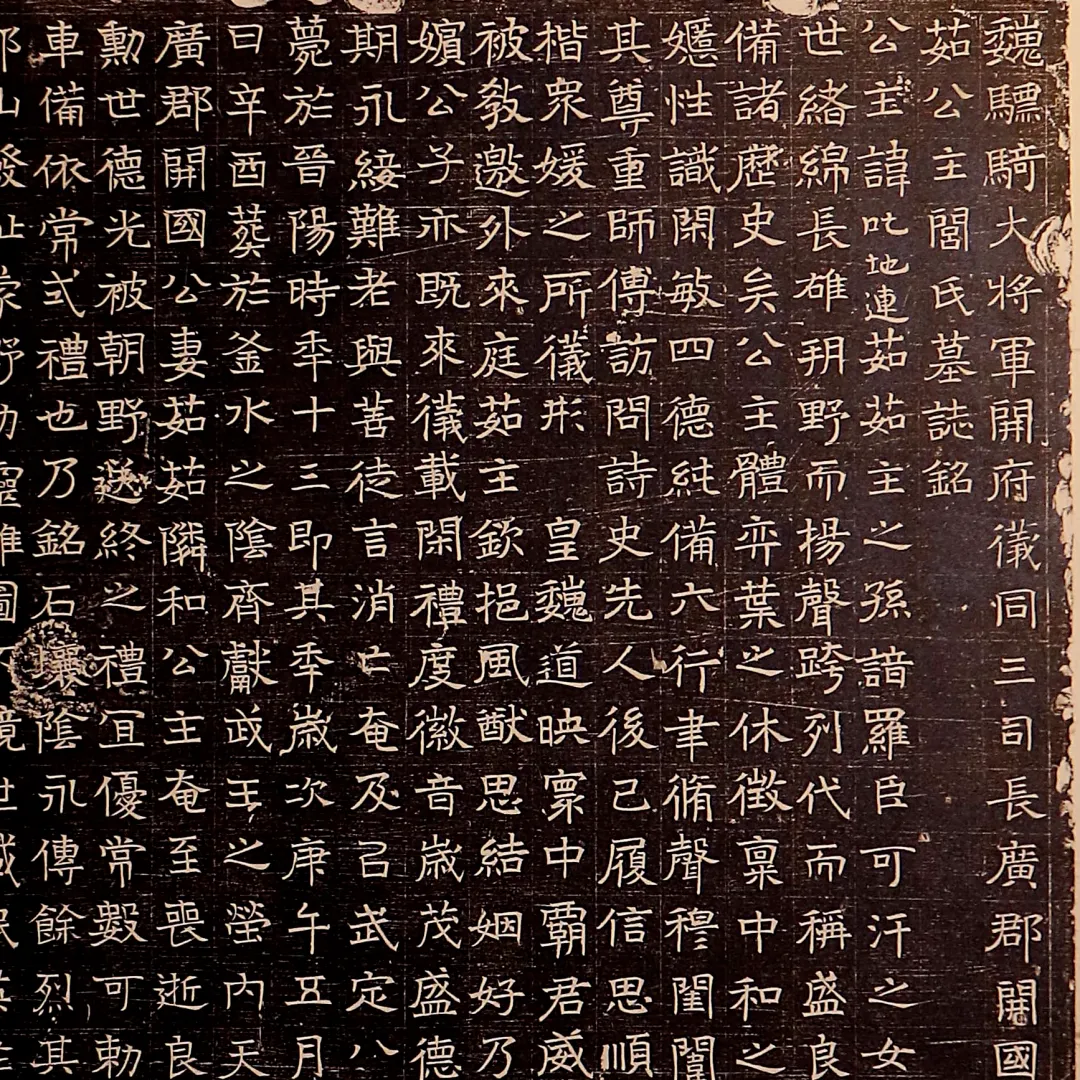 魏驃騎大將軍開府儀同三司長廣郡開國
茹公主閭氏墓誌銘
公主諱叱地連茹茹主之孫諳羅臣可汗之女
世緒綿長雄朔野而揚聲跨列代而稱盛良
備諸歷史矣公主體弈葉之休徵稟中和之
嬺性識閑敏四德純備六行聿脩聲穆閨闈
其尊重師傅訪問詩史先人後己履信思順
楷眾媛之所儀形 皇魏道映寰中霸君威
被教邀外來庭茹主欽挹風猷思結姻好乃
嬪公子亦既來儀載閑禮度徽音歲茂盛德
期永綏難老與善徒言消亡奄及己武定八
薨於晉陽時年十三即其年歲次庚午五月
日辛酉葬於釜水之陰齊獻武王之塋内天
廣郡開國公妻茹茹隣和公主奄至喪逝良
勳世德光被朝野送終之禮宜優常數可勅
車備依常式禮也乃銘石壤陰永傳餘烈其